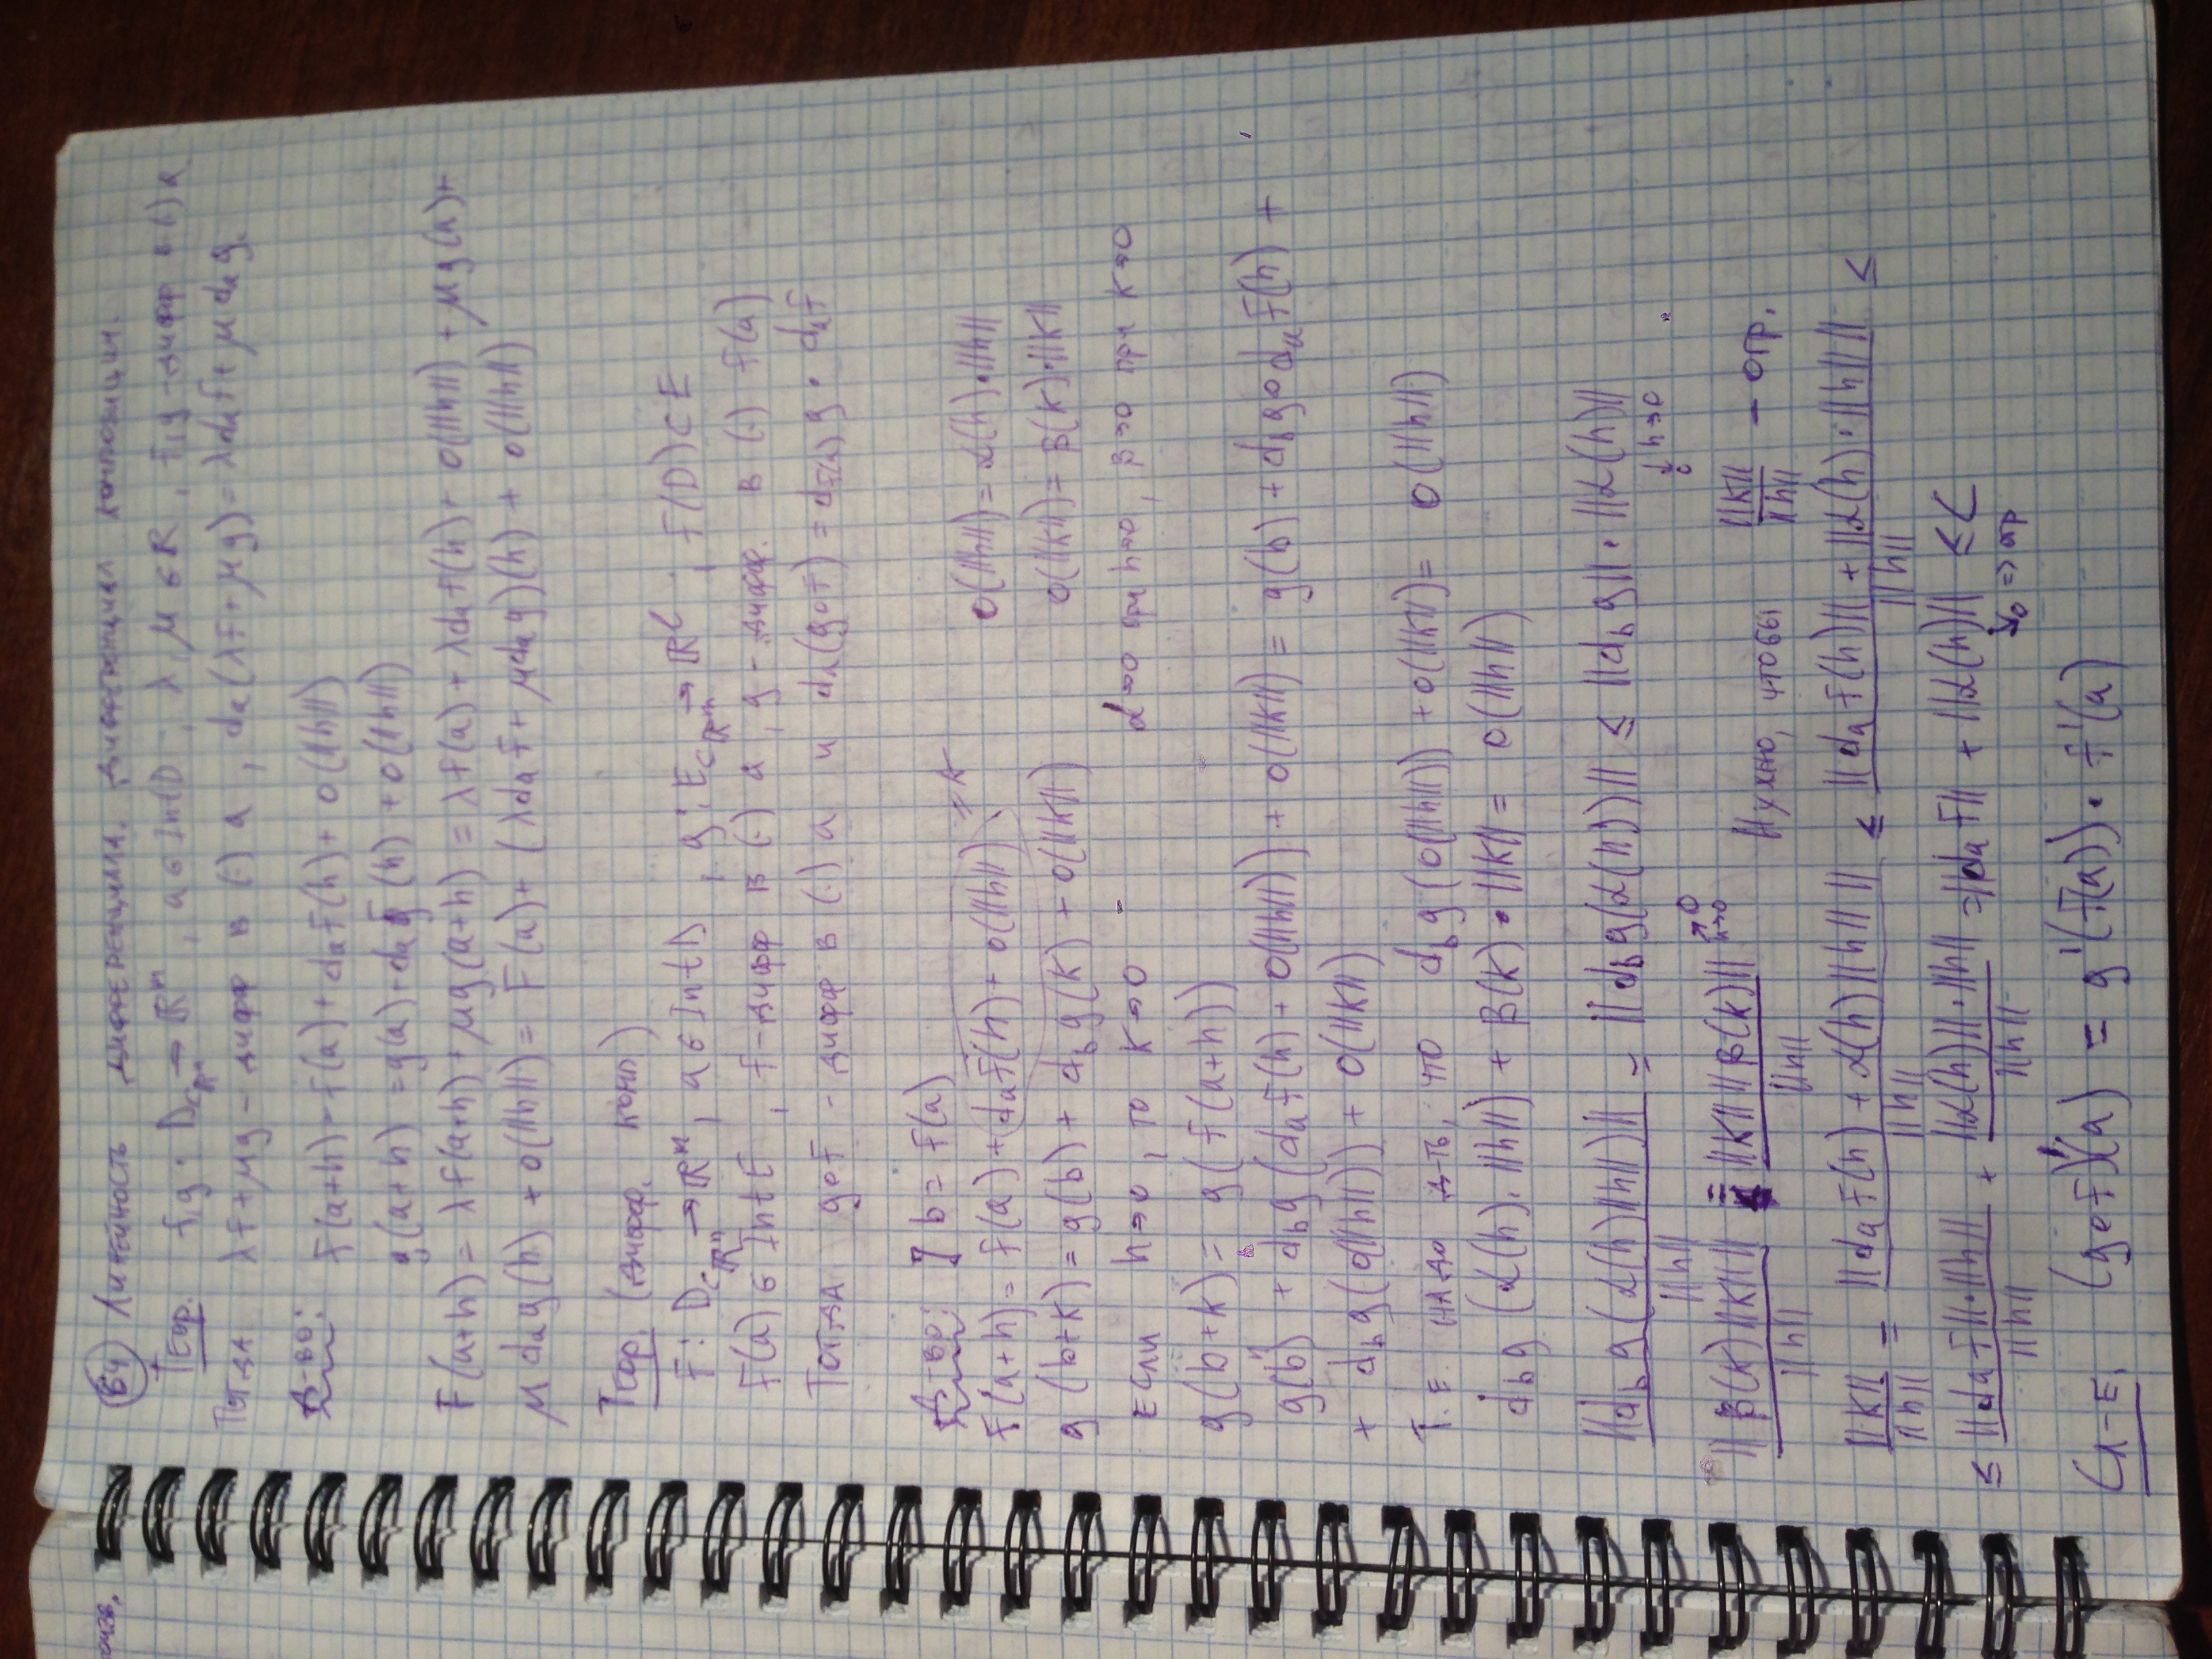 озв.
64 Линейность дифференциала. Дифференциал композиции.
Теор. f, g : D⊂ℝⁿ → ℝᵐ, a ∈ Int D, λ, μ ∈ ℝ, f, g - дифф в (·) a
Тогда λf + μg - дифф в (·) a, dₐ(λf + μg) = λdₐf + μdₐg.
Д-во:
f(a+h) = f(a) + dₐf(h) + o(||h||)
g(a+h) = g(a) + dₐg(h) + o(||h||)
F(a+h) = λf(a+h) + μg(a+h) = λf(a) + λdₐf(h) + o(||h||) + μg(a) +
μdₐg(h) + o(||h||) = F(a) + (λdₐf + μdₐg)(h) + o(||h||)
Теор. (дифф. комп)
f : D⊂ℝⁿ → ℝᵐ, a ∈ Int D, g : E⊂ℝᵐ → ℝˡ ; f(D) ⊂ E
f(a) ∈ Int E, f - дифф в (·) a, g - дифф. в (·) f(a)
Тогда g∘f - дифф в (·) a и dₐ(g∘f) = d_{f(a)}g · dₐf
Д-во: ] b = f(a)
f(a+h) = f(a) + dₐf(h) + o(||h||) = k o(||h||) = α(h)·||h||
g(b+k) = g(b) + d_b g(k) + o(||k||) o(||k||) = β(k)·||k||
если h→0, то k→0 α→0 при h→0, β→0 при k→0
g(b+k) = g(f(a+h))
"
g(b) + d_b g(dₐf(h) + o(||h||)) + o(||k||) = g(b) + d_b g∘dₐf(h) +
+ d_b g(o(||h||)) + o(||k||)
Т.е. надо д-ть, что d_b g(o(||h||)) + o(||k||) = o(||h||)
d_b g(α(h)·||h||) + β(k)·||k|| = o(||h||)
||d_b g(α(h)||h||)|| / ||h|| = ||d_b g(α(h))|| ≤ ||d_b g||·||α(h)||
↓ h→0
0
||β(k)||k|| || / ||h|| = ||k|| ||β(k)|| / ||h|| →0 h→0 Нужно, чтобы ||k|| / ||h|| - огр.
||k|| / ||h|| = ||dₐf(h) + α(h)||h|| || / ||h|| ≤ ||dₐf(h)|| + ||α(h)·||h|| || / ||h|| ≤
≤ ||dₐf||·||h|| / ||h|| + ||α(h)||·||h|| / ||h|| = ||dₐf|| + ||α(h)|| ≤ C
↘0 => огр
Сл-е. (g∘f)'(a) = g'(f(a))·f'(a)